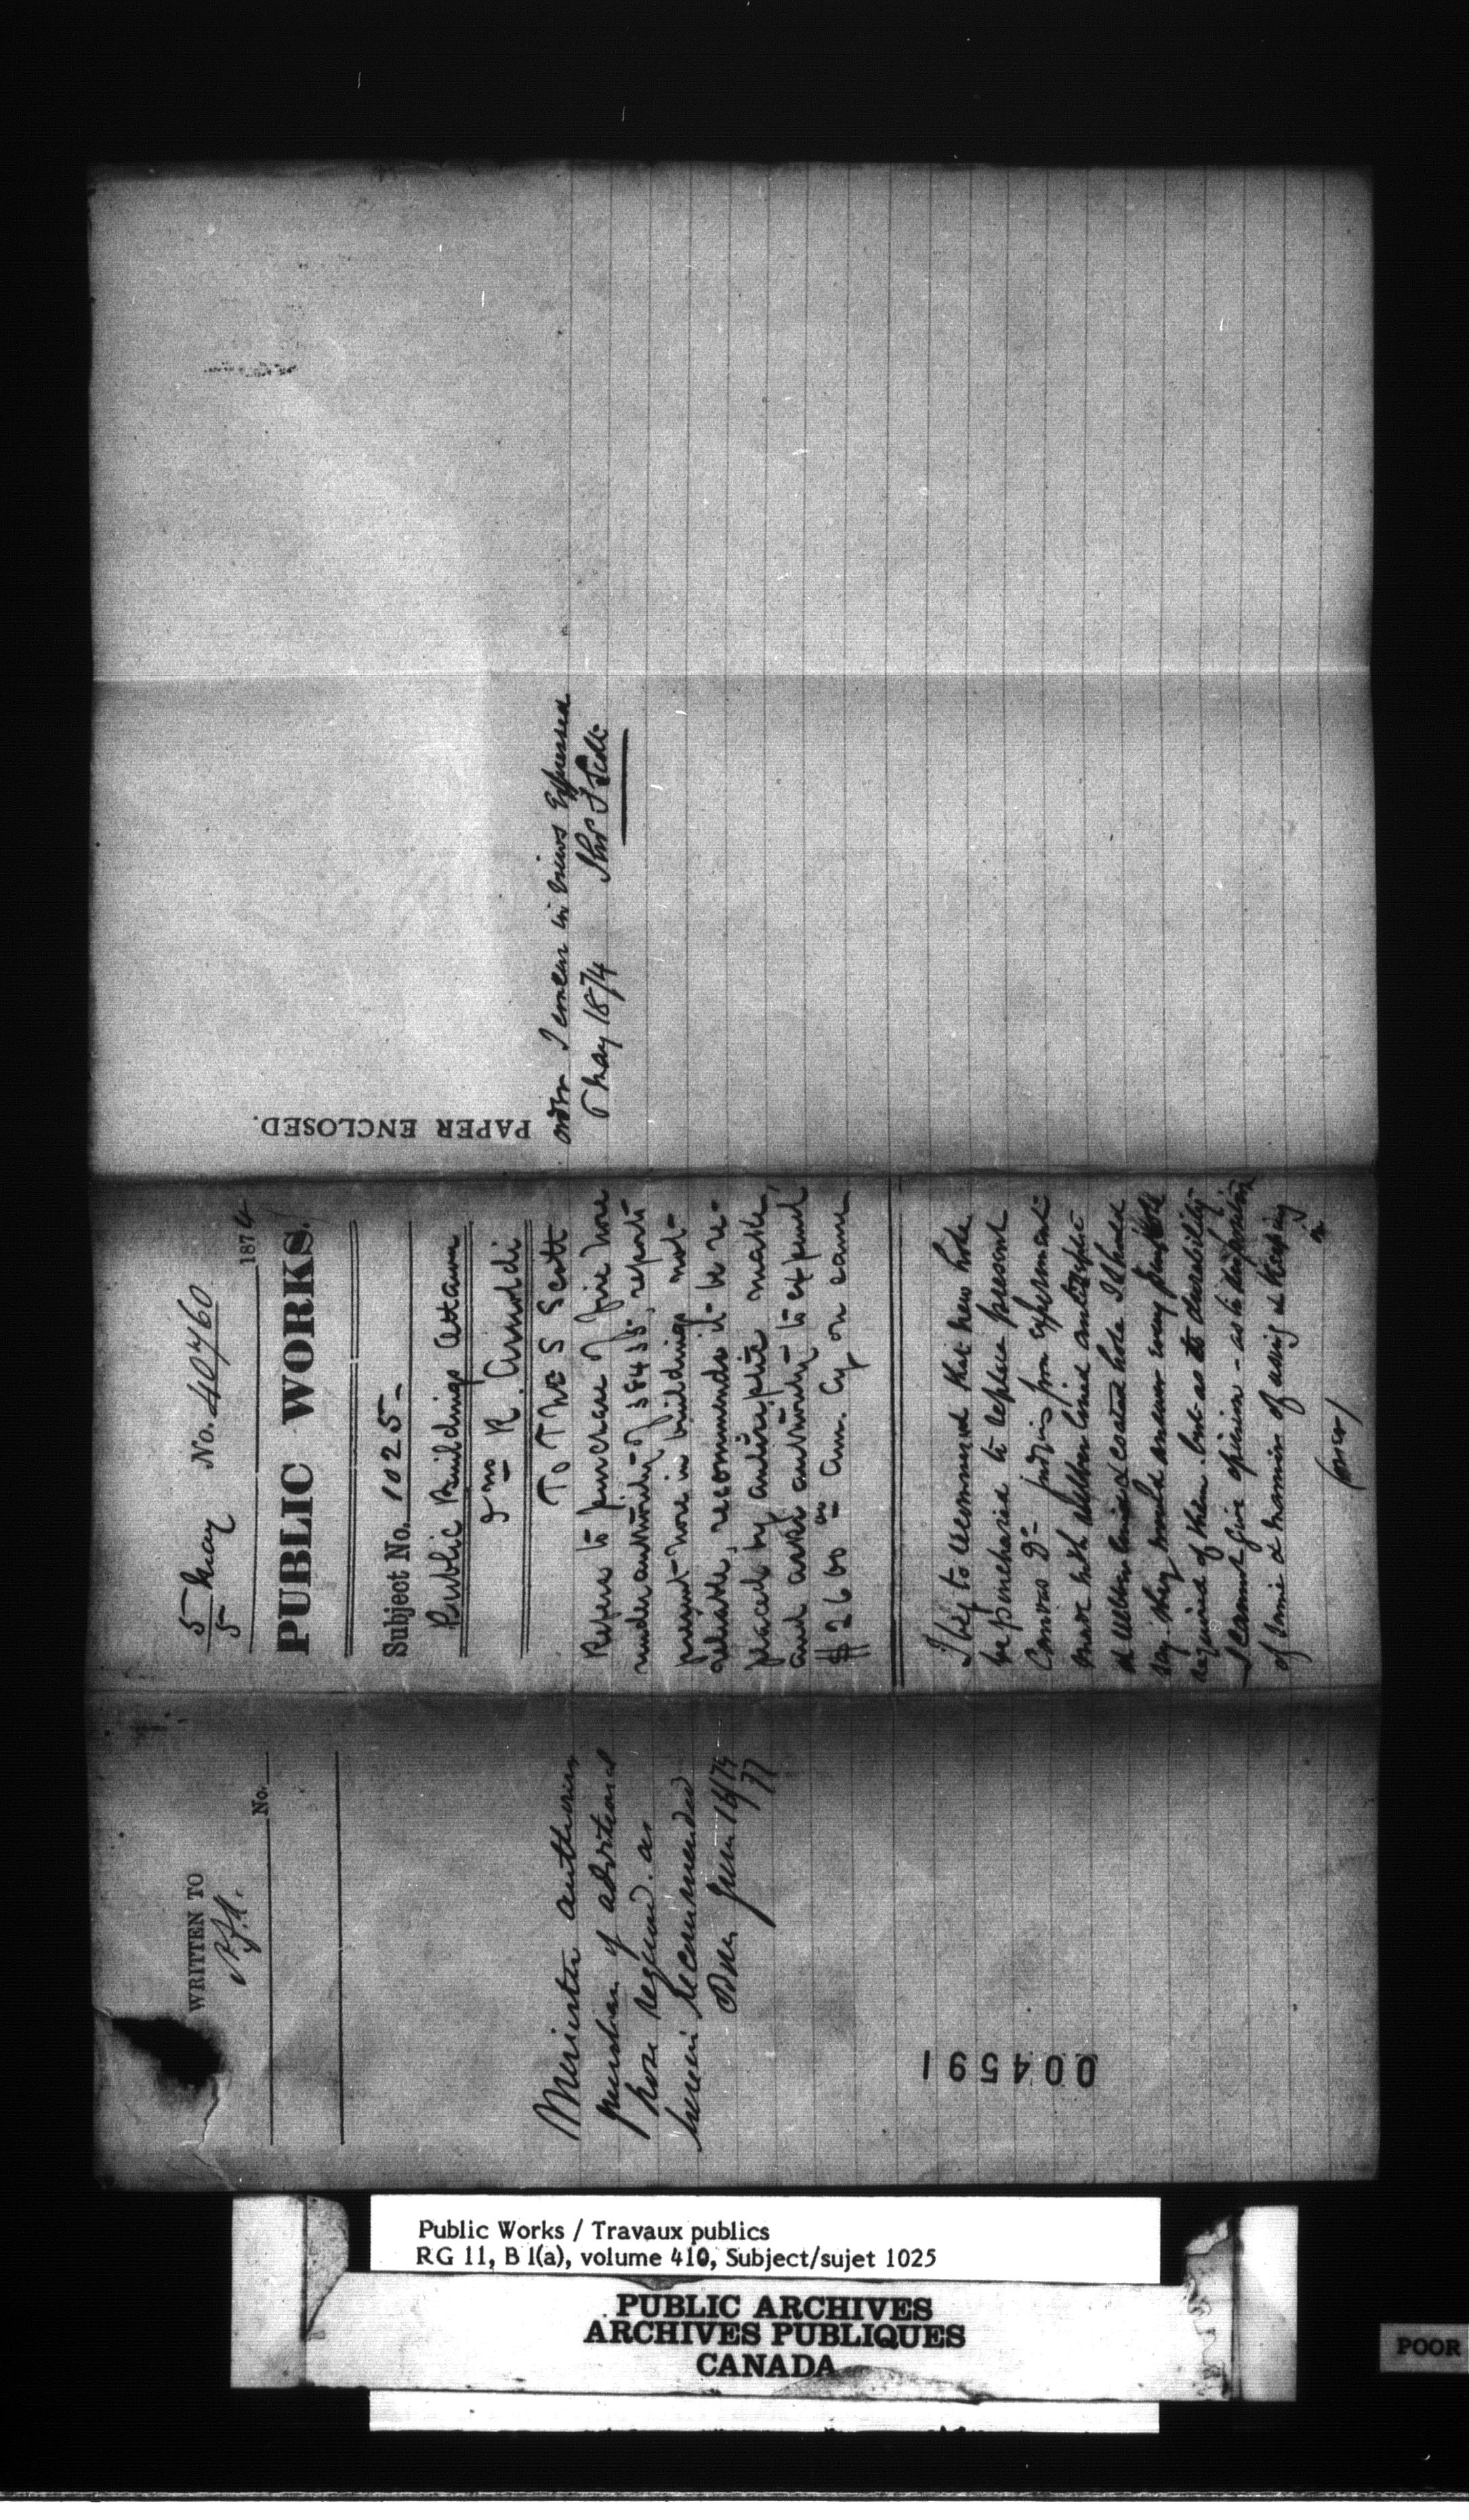 WRITTEN TO
No.
Minister authorizes
purchase of additional
hose required as
herein recommended
June 16/74
004591
5 May No. 40760
5 1874
PUBLIC WORKS.
Subject No. 1025
Public Buildings Ottawa
Jno R. Arnoldi
To Thos S Scott
Refers to purchase of fire hose
under authority of 38435, reports
present hose in buildings not
reliable, recommends it be re-
placed by antiseptic make,
and asks authority to expend
$2600 00 Am. Cy on same
I beg to recommend that new hose
be purchased to replace present
Canvas Do judging from experiments
made with rubber lined antiseptic
& rubber lined coated hose I should
say they would answer every purpose
required of them. but as to durability
I cannot give opinion - as to
of same & manner of using & keeping
in
(over)
PAPER ENCLOSED.
order I concur in views Expressed
6 May 1874 Thos S Scott
Public Works / Travaux publics
RG 11, B 1(a), volume 410, Subject/sujet 1025
PUBLIC ARCHIVES
ARCHIVES PUBLIQUES
CANADA
POOR